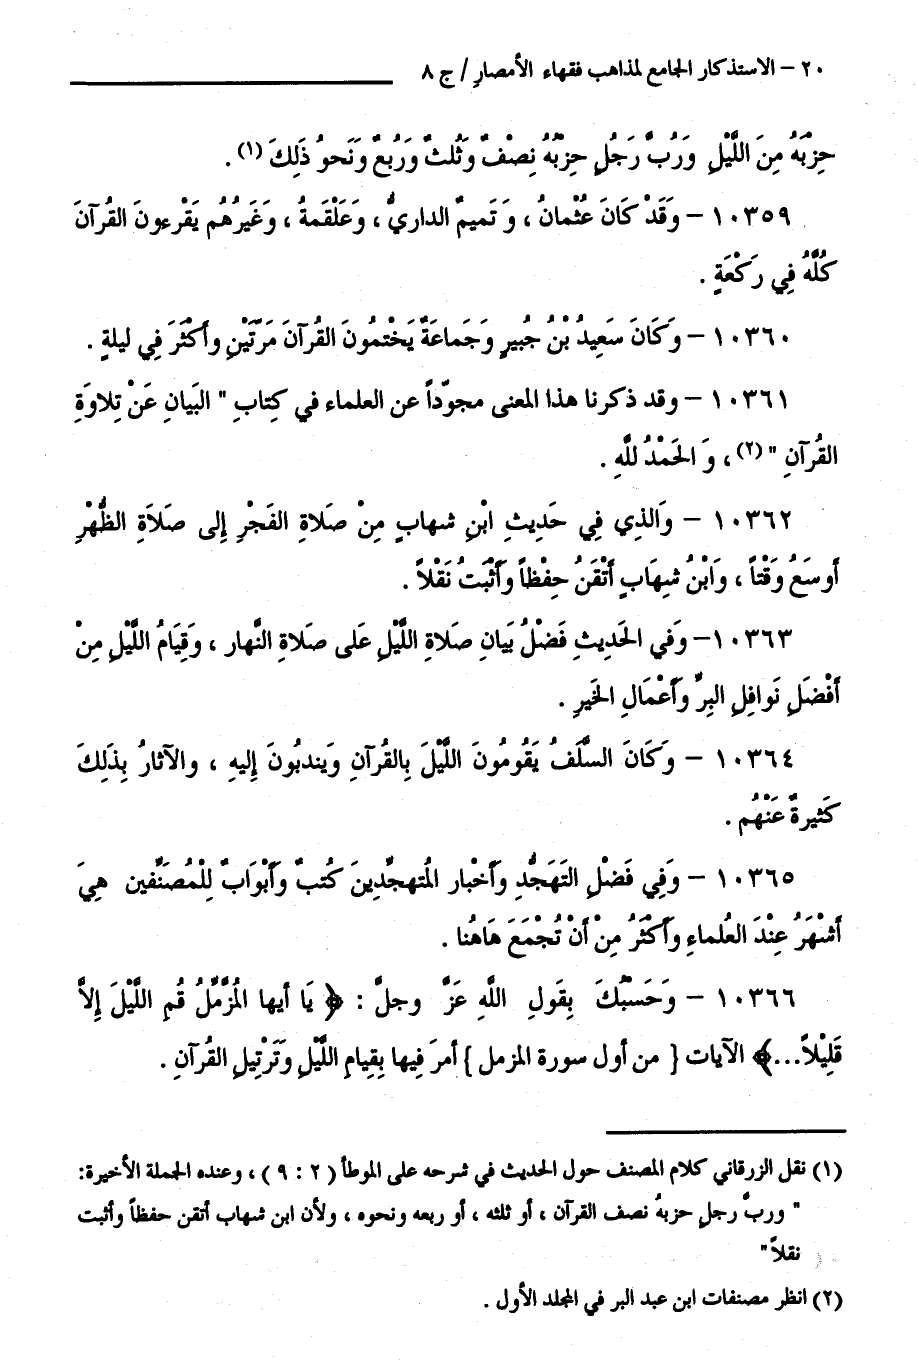 ٢٠ – الاستذكار الجامع لمذاهب فقهاء الأمصار / ج ٨
حِزْبَهُ مِنَ اللَّيْلِ وَرُبَّ رَجُلٍ حِزْبُهُ نِصْفٌ وَثُلثٌ وَرُبعٌ وَنَحوُ ذَلِكَ (١) .
١٠٣٥٩ – وَقَدْ كَانَ عُثْمانُ ، وَ تَميمٌ الداريُّ ، وَعَلْقَمةُ ، وَغَيرُهُم يَقْرءونَ القُرآنَ
كُلَّهُ فِي رَكْعَةٍ .
١٠٣٦٠ – وَكَانَ سَعِيدُ بْنُ جُبيرٍ وَجَماعَةٌ يَختْمُونَ القُرآنَ مَرَّتَيْنِ وأكْثَرَ فِي ليلةٍ .
١٠٣٦١ – وقد ذكرنا هذا المعنى مجوّداً عن العلماء في كِتابِ " البَيانِ عَنْ تِلاوَةِ
القُرآنِ " (٢) ، وَ الحَمْدُ للَّهِ .
١٠٣٦٢ – وَالذِي فِي حَدِيثِ ابْنِ شهابٍ مِنْ صَلاةِ الفَجْرِ إِلى صَلاَةِ الظُّهْرِ
أوسَعُ وَقْتاً ، وَابْنُ شهَابٍ أتْقَنُ حِفْظاً وأَثْبَتُ نَقْلاً .
١٠٣٦٣ – وَفي الحَديثِ فَضْلُ بَيانِ صَلاةِ اللَّيْلِ عَلى صَلاةِ النَّهار ، وَقِيَامُ اللَّيْلِ مِنْ
أفْضَلِ نَوافِلِ البِرِّ وَأعْمَالِ الخَيرِ .
١٠٣٦٤ – وَكَانَ السَّلَفُ يَقُومُونَ اللَّيْلَ بِالقُرآنِ وَيَندبُونَ إِليهِ ، والآثارُ بِذَلِكَ
كَثيرةٌ عَنْهُم .
١٠٣٦٥ – وَفِي فَضْلِ التَهَجُّدِ وأَخْبار المُتهجِّدِينَ كُتبٌ وأَبْوَابٌ لِلْمُصَنِّفين هِيَ
أشْهَرُ عِنْدَ العُلماءِ وأَكْثَرُ مِنْ أنْ تُجْمَعَ هَاهُنا .
١٠٣٦٦ – وَحَسْبُكَ بِقَولِ اللَّهِ عَزَّ وجلَّ : ﴿ يَا أيها المُزَّمِّلُ قُمِ اللَّيْلَ إِلاَّ
قَلِيْلاً...﴾ الآيات [ من أول سورة المزمل ] أمرَ فِيها بِقِيامِ اللَّيْلِ وَتَرْتِيلِ القُرآنِ .
(١) نقل الزرقاني كلام المصنف حول الحديث في شرحه على الموطأ ( ٢ : ٩ ) ، وعنده الجملة الأخيرة:
" وربَّ رجلٍ حزبهُ نصف القرآن ، أو ثلثه ، أو ربعه ونحوه ، ولأن ابن شهاب أتقن حفظاً وأثبت
نقلاً "
(٢) انظر مصنفات ابن عبد البر في المجلد الأول .